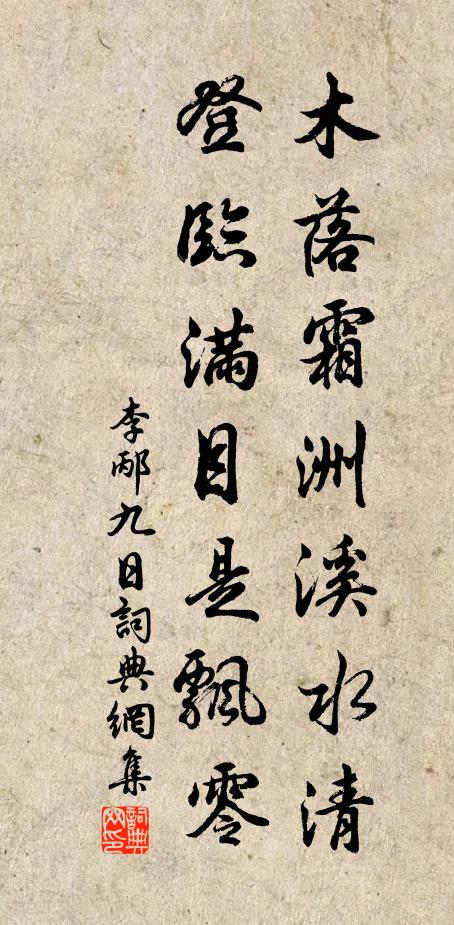 木落霜洲溪水清
登臨滿目是飄零
李邴九日詞典網集
詞典网印